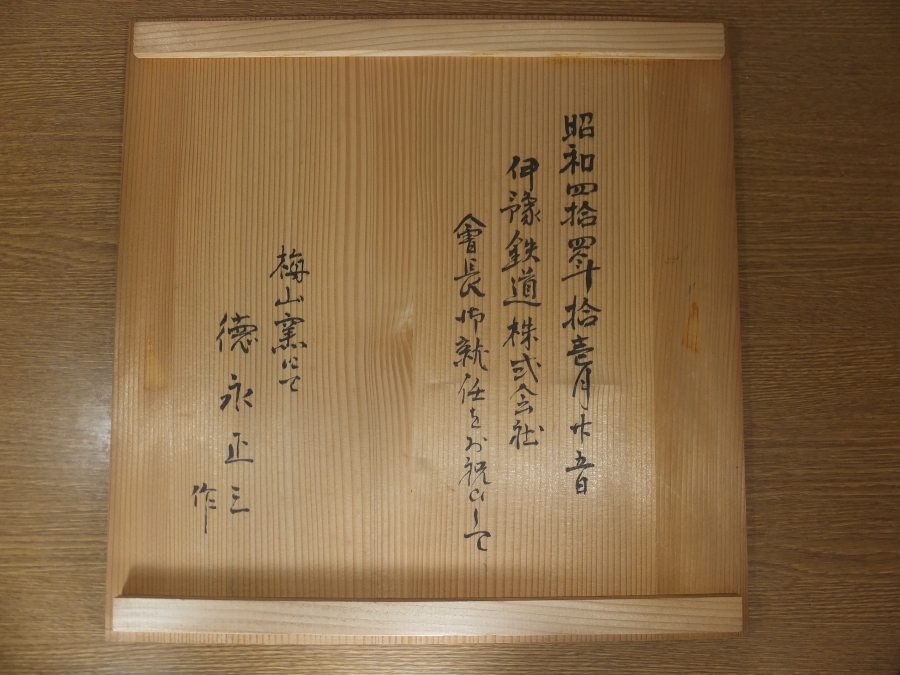 昭和四拾四年拾壱月廿五日
伊豫鉄道株式会社
會長御就任をお祝ひして
梅山窯にて
徳永正三
作